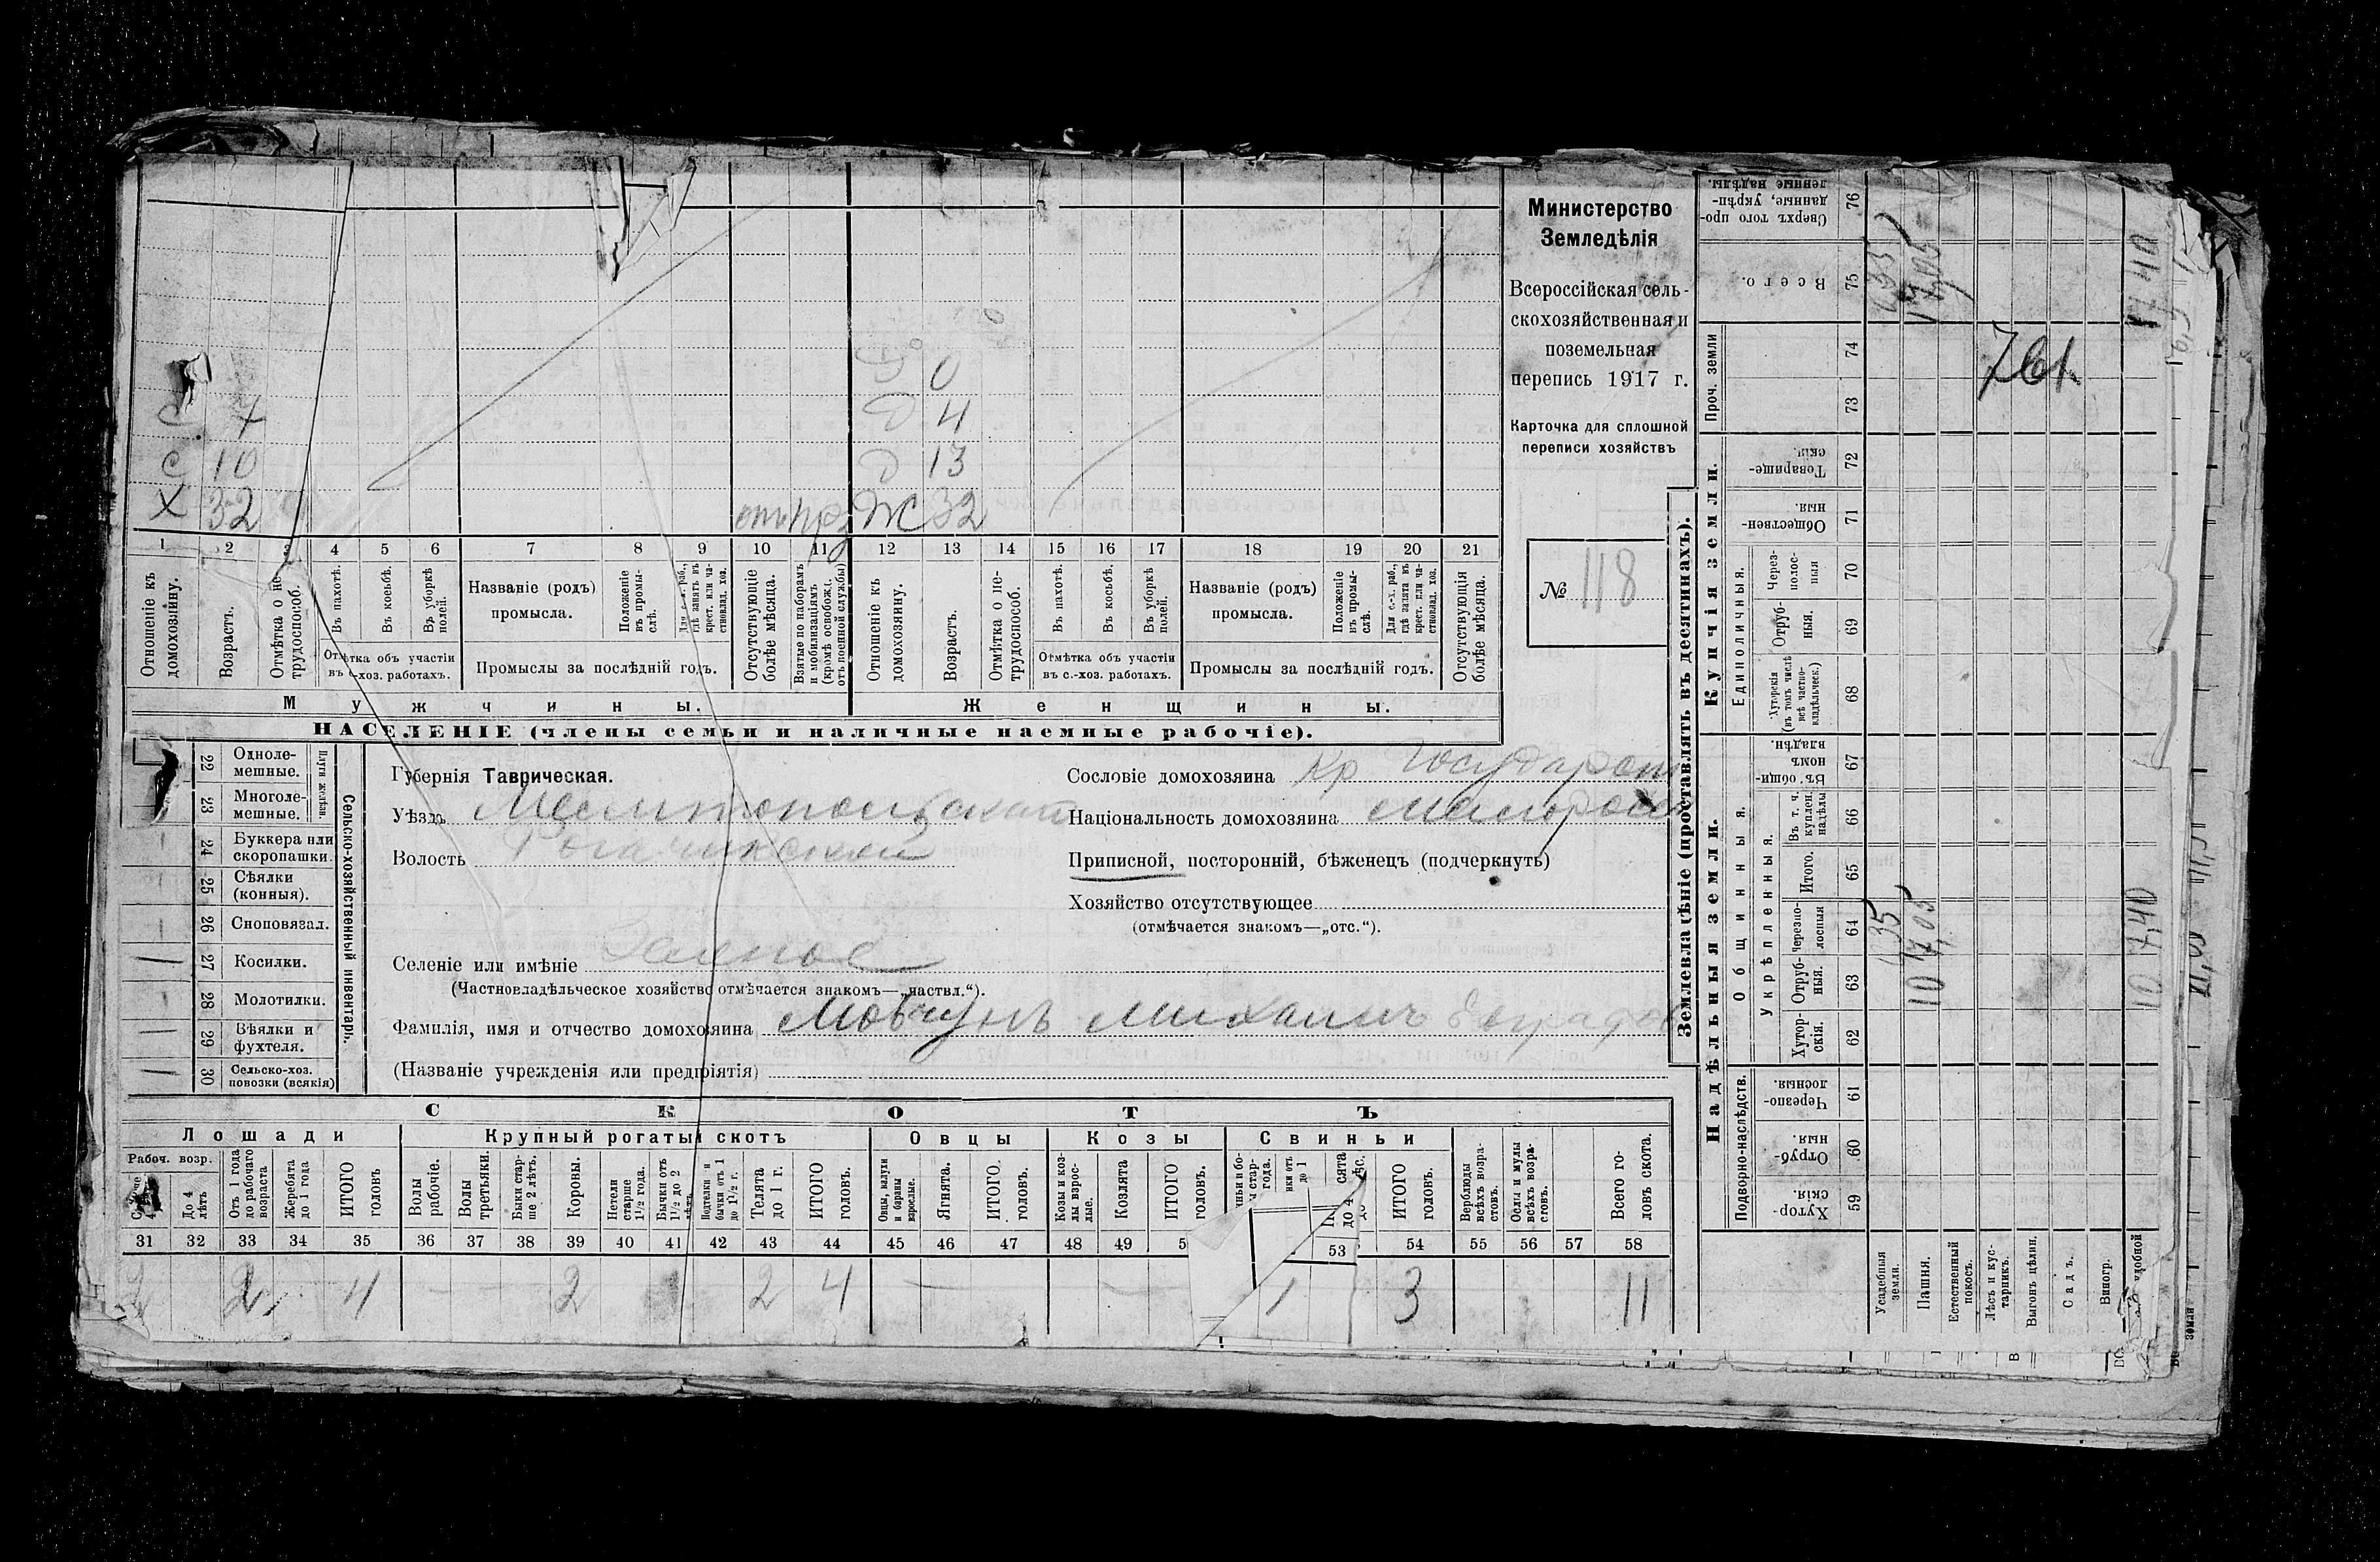 С 4
С 10
Х 32
Д 0
Д 4
Д 13
Ж 32
1 2 3 4 5 6 7 8 9 10 11 12 13 14 15 16 17 18 19 20 21
Отношеніе къ домохозяину.
Возрастъ.
Отмѣтка о нетрудоспособ.
Въ пахотѣ.
Въ косьбѣ.
Въ уборкѣ полей.
Отмѣтка объ участіи въ с.-хоз. работахъ.
Названіе (родъ) промысла.
Положеніе въ промыслѣ.
Для с.-х. раб., гдѣ занятъ въ крест. или частновлад. хоз.
Промыслы за послѣдній годъ.
Отсутствующіе болѣе мѣсяца.
Взятые по наборамъ и мобилизаціямъ (кромѣ освобожд. отъ военной службы)
Отношеніе къ домохозяину.
Возрастъ.
Отмѣтка о нетрудоспособ.
Въ пахотѣ.
Въ косьбѣ.
Въ уборкѣ полей.
Отмѣтка объ участіи въ с.-хоз. работахъ.
Названіе (родъ) промысла.
Положеніе въ промыслѣ.
Для с.-х. раб., гдѣ занята въ крест. или частновлад. хоз.
Промыслы за послѣдній годъ.
Отсутствующія болѣе мѣсяца.
Мужчины.
Женщины.
НАСЕЛЕНІЕ (члены семьи и наличные наемные рабочіе).
Министерство
Земледѣлія
Всероссійская сель-
скохозяйственная и
поземельная
перепись 1917 г.
Карточка для сплошной
переписи хозяйствъ
№ 118
Сельско-хозяйственный инвентарь.
Плуги желѣзн.
22 Одноле-мешные.
23 Многоле-мешные.
24 Буккера или скоропашки.
25 Сѣялки (конныя).
26 Сноповязал.
27 Косилки.
28 Молотилки.
29 Вѣялки и фухтеля.
30 Сельско-хоз. повозки (всякія)
Губернія Таврическая.
Уѣздъ Мелитопольскій
Волость Рогачикской
Селеніе или имѣніе
(Частновладѣльческое хозяйство отмѣчается знакомъ—„частвл.“).
Фамилія, имя и отчество домохозяина Мовчунъ Михаилъ
(Названіе учрежденія или предпріятія)
Сословіе домохозяина Кр Государст
Національность домохозяина Малоросс
Приписной, посторонній, бѣженецъ (подчеркнуть)
Хозяйство отсутствующее
(отмѣчается знакомъ—„отс.“).
СКОТЪ
Лошади
Крупный рогатый скотъ
Овцы
Козы
Свиньи
Рабоч. возр.
До 4 лѣтъ
Отъ 1 года до рабочаго возраста
Жеребята до 1 года
ИТОГО головъ
Волы рабочіе.
Волы третьяки.
Быки старше 2 лѣтъ.
Коровы.
Нетели старше 1½ года.
Бычки отъ 1½ до 2 лѣтъ
Подтелки и бычки отъ 1 до 1½ г.
Телята до 1 г.
ИТОГО головъ.
Овцы, валухи и бараны взрослые.
Ягнята.
ИТОГО. головъ.
Козы и козлы взрослые.
Козлята
ИТОГО головъ.
ИТОГО головъ.
Верблюды всѣхъ возрастовъ.
Ослы и мулы всѣхъ возрастовъ.
Всего головъ скота.
31 32 33 34 35 36 37 38 39 40 41 42 43 44 45 46 47 48 49 5 53 54 55 56 57 58
2 2 4 2 2 4 1 3 11
Землевладѣніе (проставлять въ десятинахъ).
Надѣльныя земли.
Купчія земли.
Проч. земли
Подворно-наслѣдств.
Общинныя.
Укрѣпленныя.
Единоличныя.
Хуторскія. 59
Отрубныя. 60
Черезполосныя. 61
Хуторскія. 62
Отрубныя. 63
Черезполосныя 64
Итого. 65
Въ т. ч. куплен. надѣлы 66
Въ общинномъ владѣн. 67
Хуторскія (въ томъ числѣ всѣ частновладѣльческ.) 68
Отрубныя. 69
Черезполосныя 70
Общественныя. 71
Товарищескія. 72
73
74
Всего. 75
Сверхъ того проданные, укрѣпленные надѣлы. 76
Усадебныя земли.
Пашня.
Естественный покосъ.
Лѣсъ и кустарникъ.
Выгонъ цѣлин.
Садъ.
Виногр.